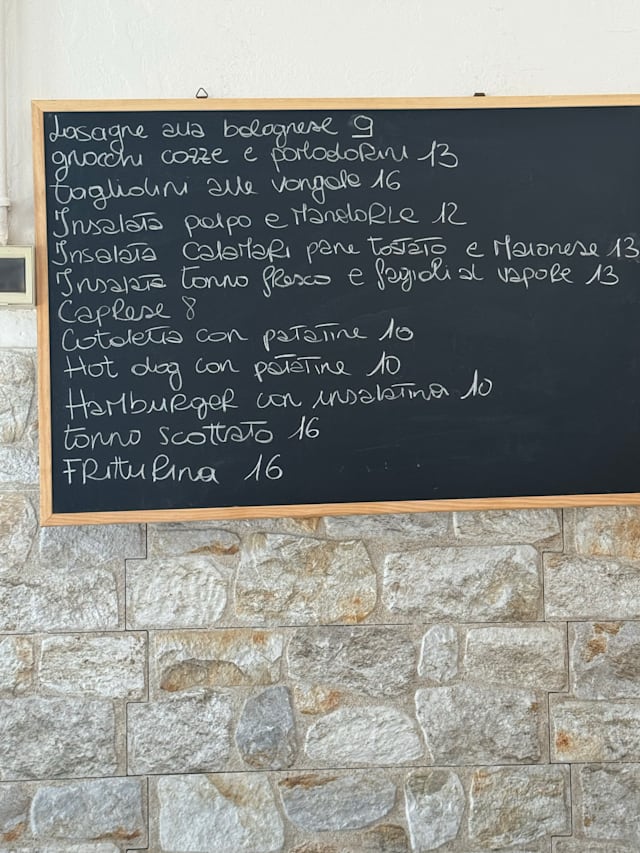 Lasagne alla bolognese 9
gnocchi cozze e pomodorini 13
tagliolini alle vongole 16
Insalata polpo e Mandorle 12
Insalata Calamari pane tostato e Maionese 13
Insalata tonno fresco e fagioli al vapore 13
Caprese 8
Cotoletta con patatine 10
Hot dog con patatine 10
Hamburger con insalatina 10
tonno scottato 16
Fritturina 16